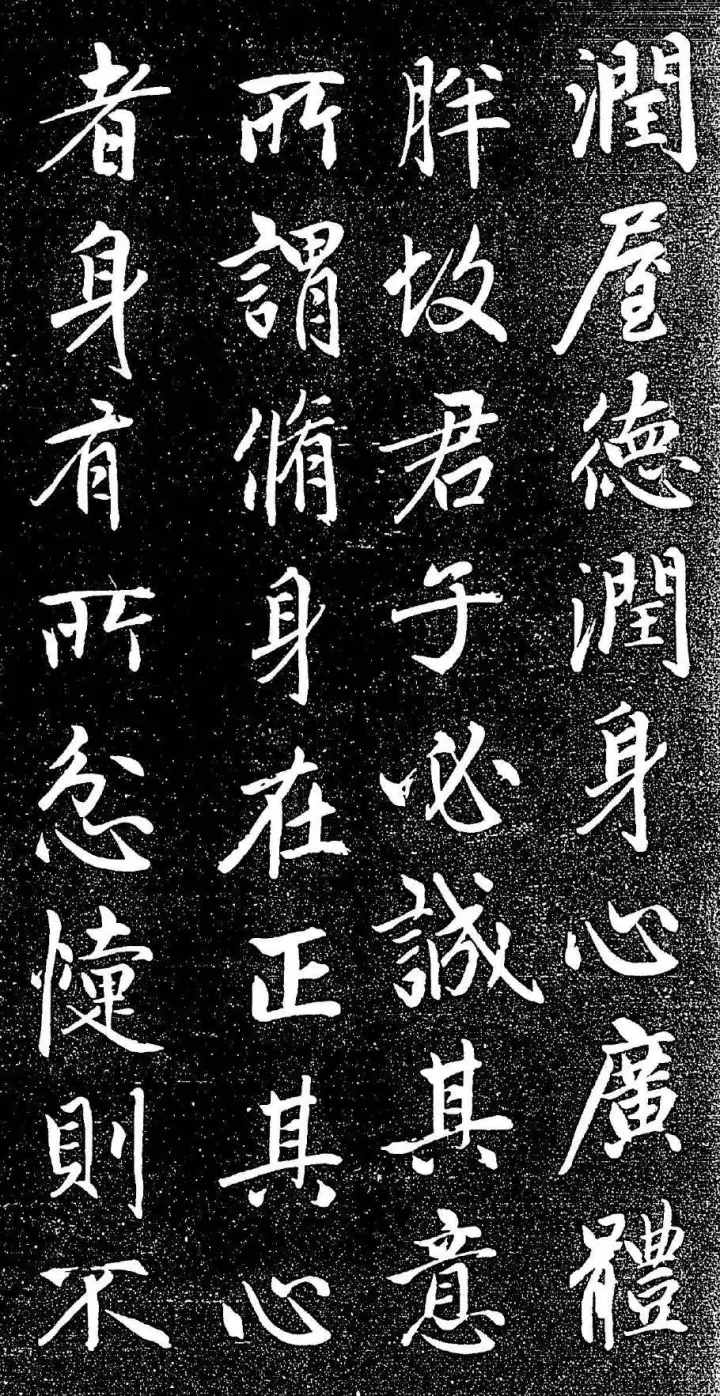 潤屋德潤身心廣體
胖故君子必誠其意
所謂脩身在正其心
者身有所忿懥則不